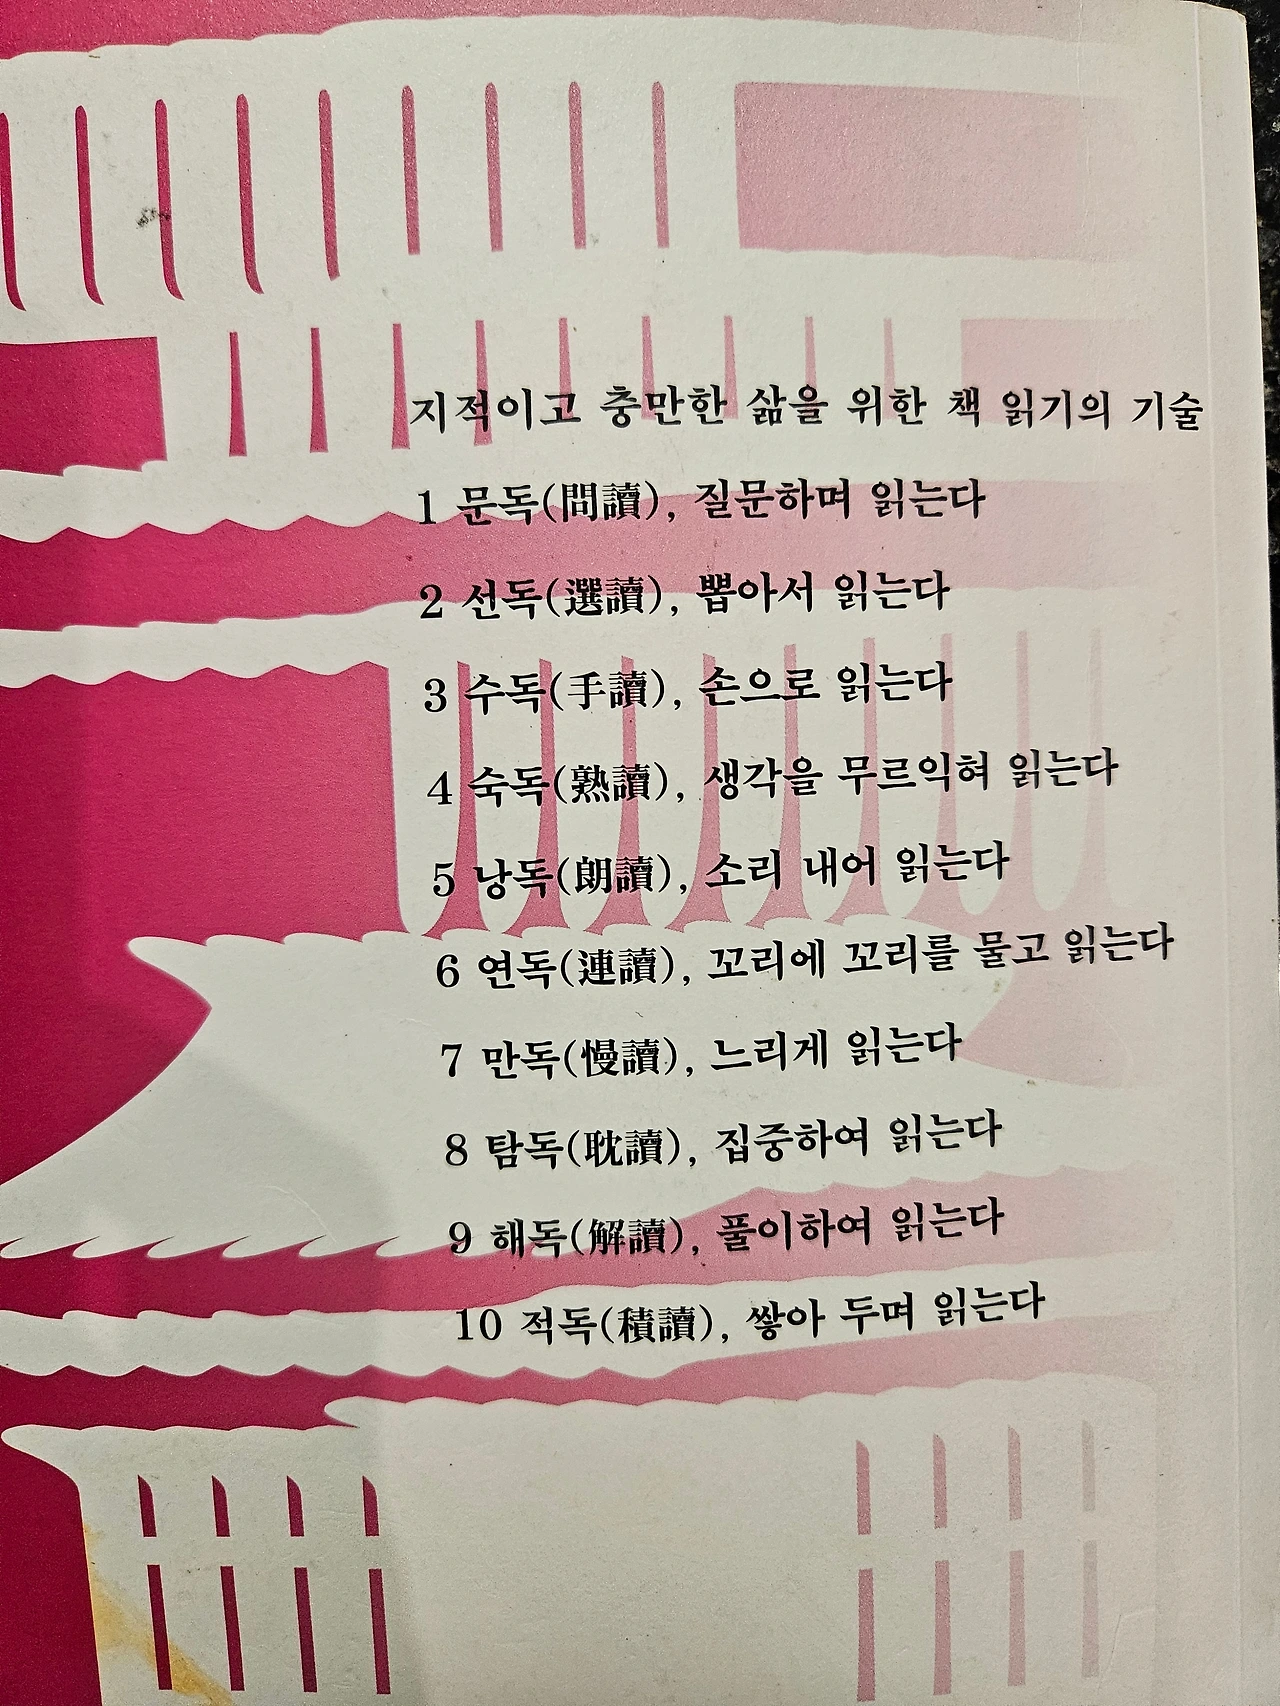 지적이고 충만한 삶을 위한 책 읽기의 기술
1 문독(問讀), 질문하며 읽는다
2 선독(選讀), 뽑아서 읽는다
3 수독(手讀), 손으로 읽는다
4 숙독(熟讀), 생각을 무르익혀 읽는다
5 낭독(朗讀), 소리 내어 읽는다
6 연독(連讀), 꼬리에 꼬리를 물고 읽는다
7 만독(慢讀), 느리게 읽는다
8 탐독(耽讀), 집중하여 읽는다
9 해독(解讀), 풀이하여 읽는다
10 적독(積讀), 쌓아 두며 읽는다